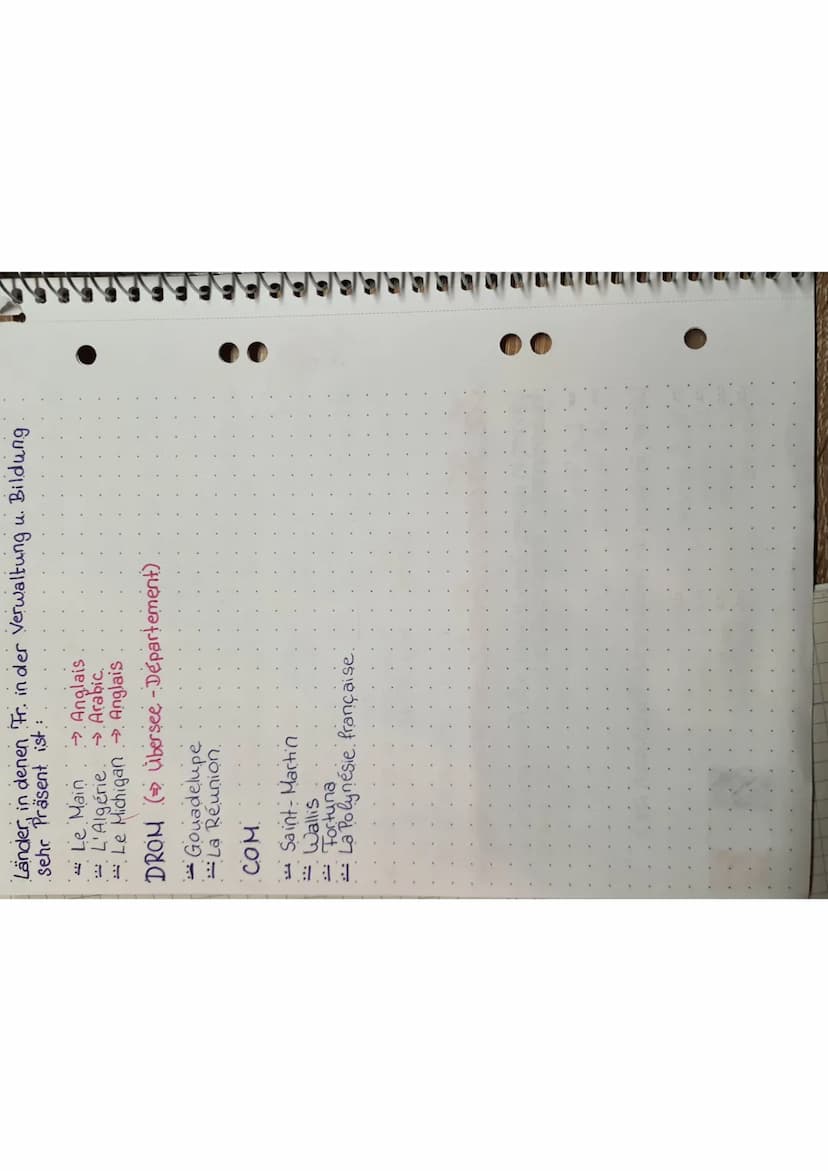 Länder, in denen Fr. in der Verwaltung u. Bildung
sehr Präsent ist:
- Le Main → Anglais
- L'Algérie → Arabic
- Le Michigan → Anglais
DROM (⇒ Übersee-Département)
- Gouadelupe
- La Réunion
COM
- Saint-Martin
- Wallis
- Fortuna
- La Polynésie française